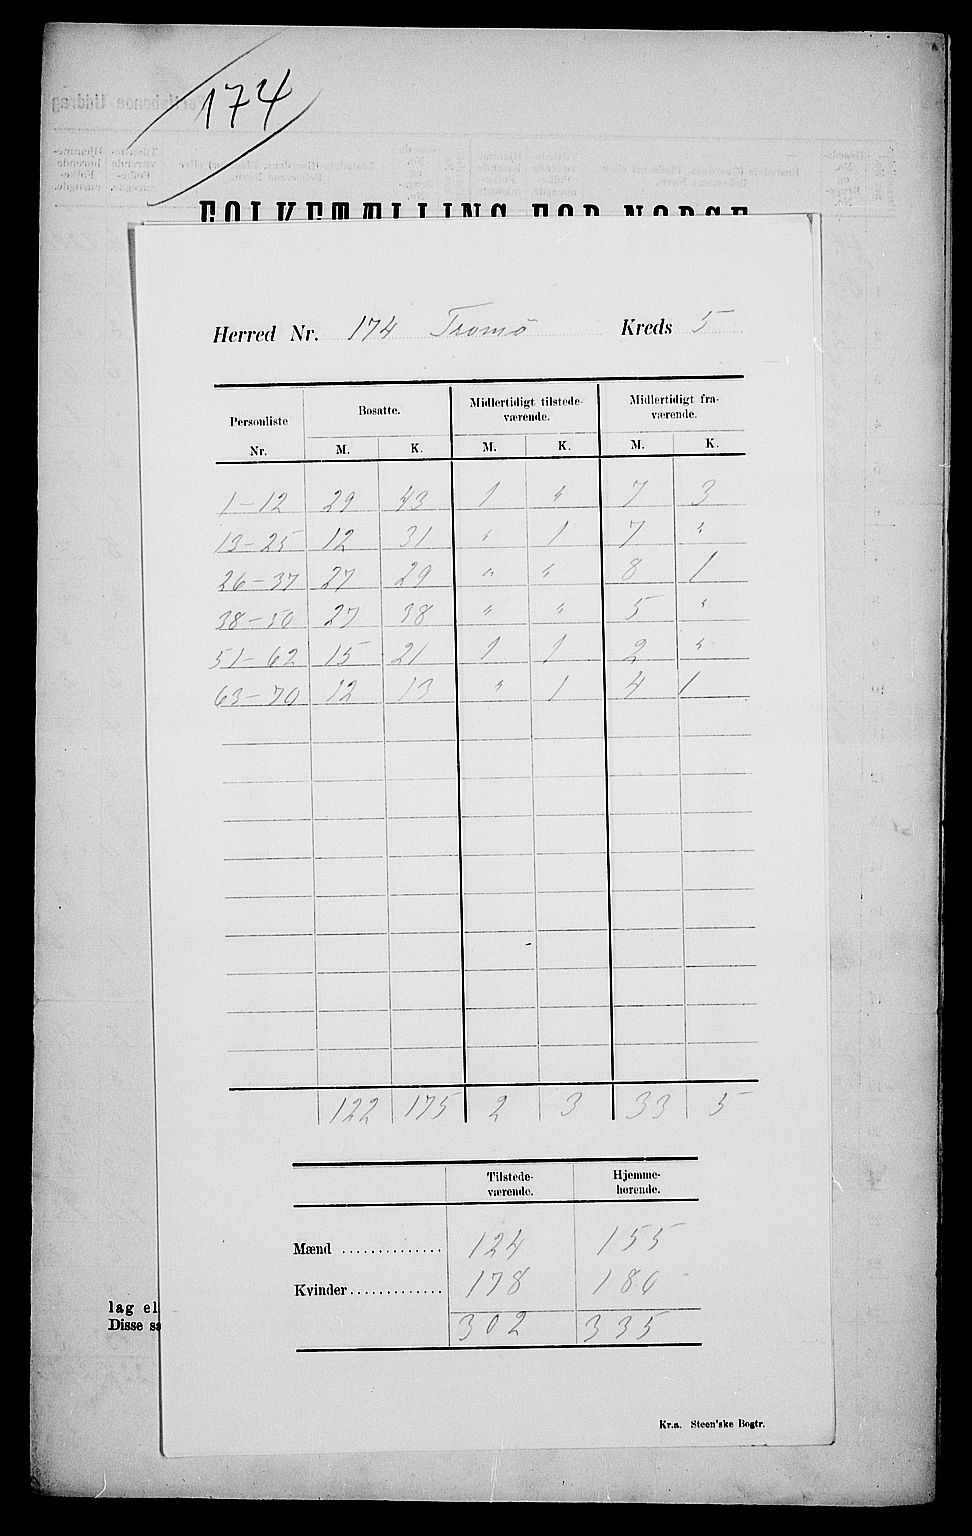 174
FOLKETÆLLING FOR NORGE
Herred Nr. 174 Tromö Kreds 5
Personliste Nr. Bosatte. Midlertidigt tilstedeværende. Midlertidigt fraværende.
M. K. M. K. M. K.
1-12 29 43 1 " 7 3
13-25 12 31 " 1 7 "
26-37 27 29 " " 8 1
38-50 27 38 " " 5 "
51-62 15 21 1 1 2 "
63-70 12 13 " 1 4 1
122 175 2 3 33 5
Tilstedeværende. Hjemmehørende.
Mænd .............. 124 155
Kvinder............. 178 180
302 335
lag el
Disse sa
Kr.a. Steen'ske Bogtr.